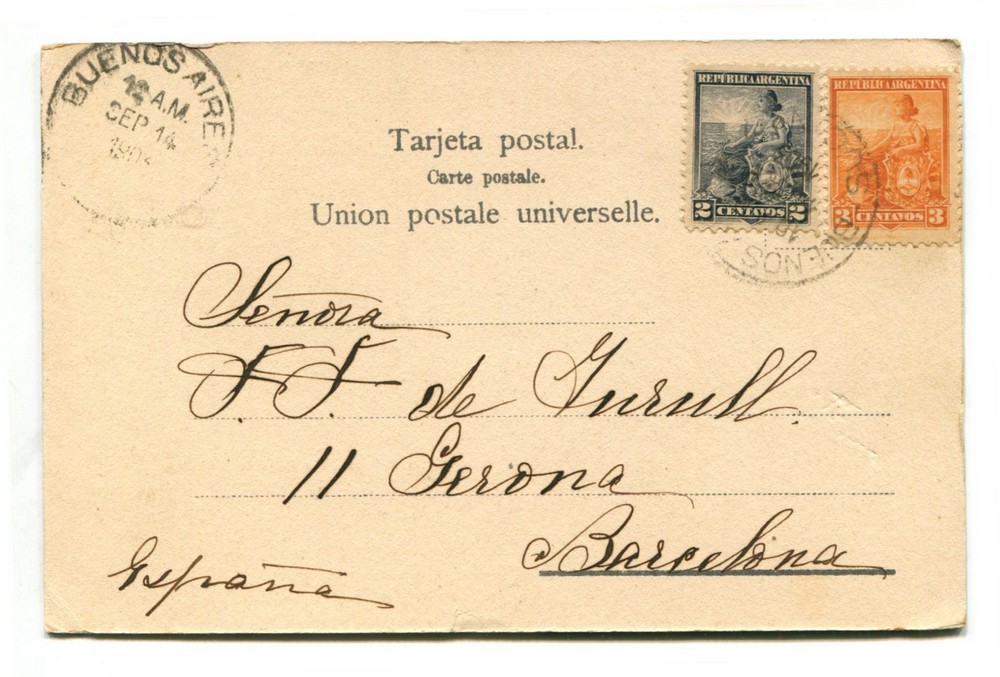 BUENOS AIRE
12 A.M.
SEP 14
REPÚBLICA ARGENTINA
2 CENTAVOS 2
REPÚBLICA ARGENTINA
3 CENTAVOS 3
BUENOS
Tarjeta postal.
Carte postale.
Union postale universelle.
Señora
F. F. de Turull
11 Gerona
Barcelona
España